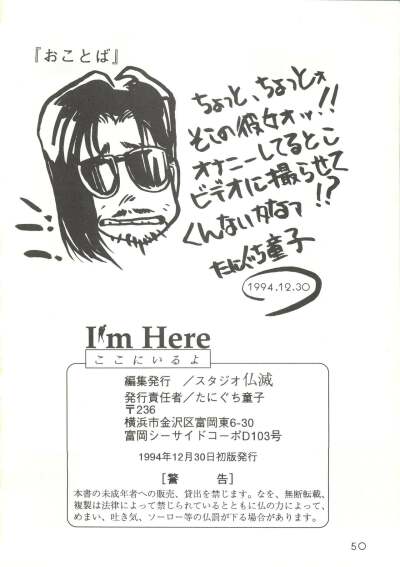 『おことば』
ちょっと、ちょっとォ
そこの彼女ォッ!!
オナニーしてるとこ
ビデオに撮らせて
くんないかなァ!?
たにぐち童子
1994.12.30
I'm Here
ここにいるよ
編集発行　／スタジオ仏滅
発行責任者／たにぐち童子
〒236
横浜市金沢区富岡東6-30
富岡シーサイドコーポD103号
1994年12月30日初版発行
［警　告］
本書の未成年者への販売、貸出を禁じます。なを、無断転載、
複製は法律によって禁じられているとともに仏の力によって、
めまい、吐き気、ソーロー等の仏罰が下る場合があります。
50